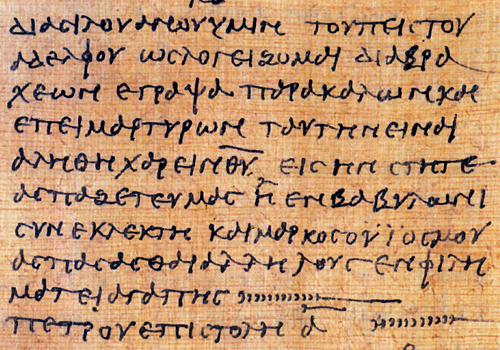 ΔΙΑϹΙΛΟΥΑΝΟΥΥΜΙΝ ΤΟΥΠΕΙϹΤΟΥ
ΑΔΕΛΦΟΥ ΩϹΛΟΓΕΙΖΟΜΑΙ ΔΙΑΒΡΑ
ΧΕΩΝ ΕΓΡΑΨΑ ΠΑΡΑΚΑΛΩΝ ΚΑΙ
ΕΠΕΙΜΑΡΤΥΡΩΝ ΤΑΥΤΗΝΕΙΝΑΙ
ΑΛΗΘΗ ΧΑΡΕΙΝ Θ̅Υ̅ ΕΙϹ ΗΝ ϹΤΗΤΕ
ΑϹΠΑΖΕΤΕΥΜΑϹ Η ΕΝΒΑΒΥΛΩΝΙ
ϹΥΝΕΚΛΕΚΤΗ ΚΑΙΜΑΡΚΟϹΟΥΙΟϹΜΟΥ
ΑϹΠΑϹΑϹΘΑΙΑΛΛΗΛΟΥϹ ΕΝΦΙΛΗ
ΜΑΤΕΙΑΓΑΠΗϹ
ΠΕΤΡΟΥΕΠΙϹΤΟΛΗ Α̅